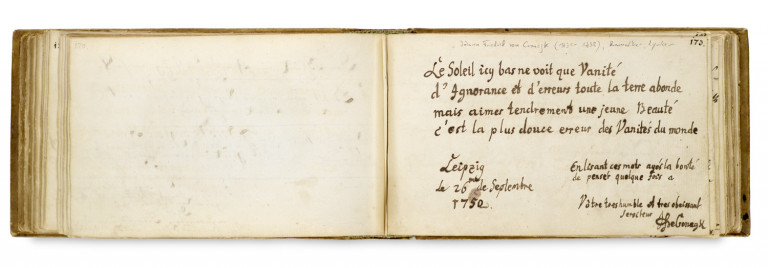 173.
Le Soleil icy bas ne voit que Vanité
d'Ignorance et d'erreurs toute la terre abonde
mais aimes tendrement une jeune Beauté
c'est la plus douce erreur des Vanités du monde
Leipzig
le 26 de Septembre
1750.
En lisant ces mots ayés la bonté
de penser quelque fois a
Vôtre tres humble et tres obeissant
Serviteur